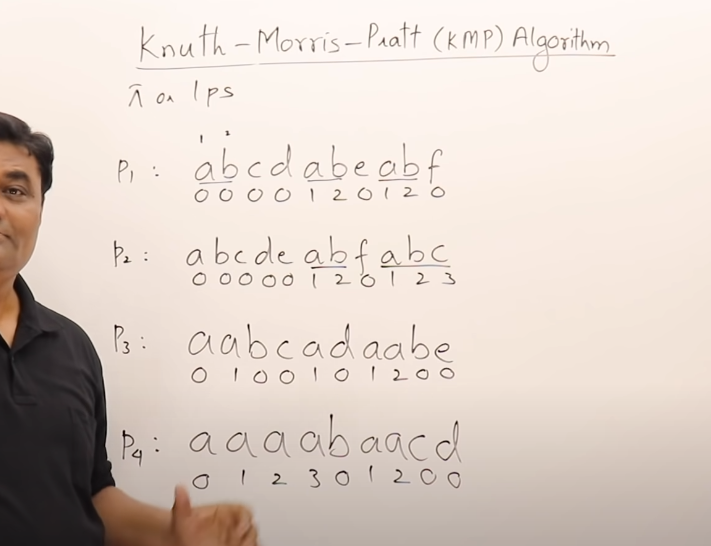 Knuth-Morris-Pratt (KMP) Algorithm
π or lps
1 2
P₁ : abcdabeabf
0 0 0 0 1 2 0 1 2 0
P₂ : abcdeabfabc
0 0 0 0 0 1 2 0 1 2 3
P₃ : aabcadaabe
0 1 0 0 1 0 1 2 0 0
P₄ : aaaabaacd
0 1 2 3 0 1 2 0 0